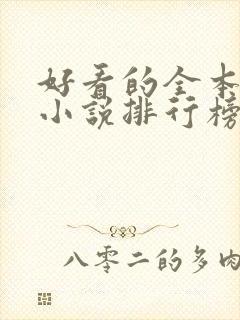 好看的全本
小说排行榜
八零二的多肉